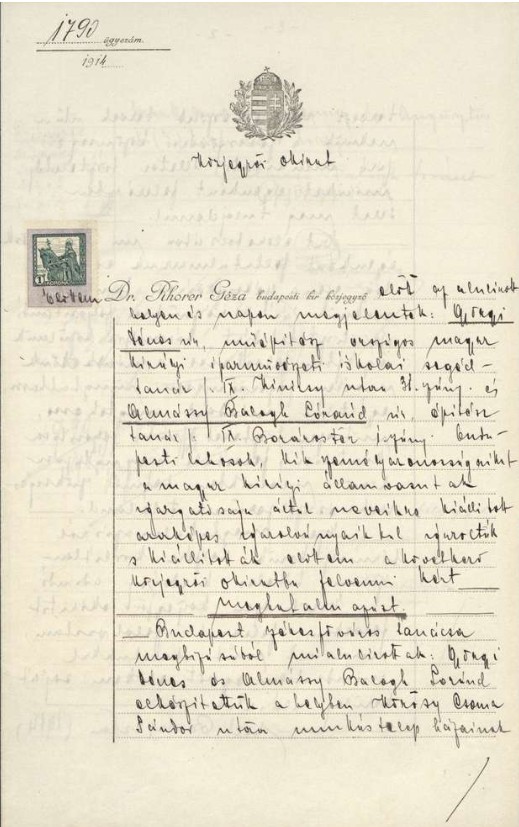 1790 ügyszám.
1914
Közjegyzői okirat
1
Előttem Dr. Rhorer Géza budapesti kir közjegyző előtt az alulirott
helyen és napon megjelentek: Györgyi
Dénes úr, műépitész országos magyar
királyi iparművészeti iskolai segéd-
tanár /: IX. Kinizsy utca 31. szám :/ és
Almássy Balogh Lóránd úr, épitész
tanár /: IX Boráros tér szám :/ buda-
pesti lakosok, kik személyazonosságaikat
a magyar királyi államvasutak
igazgatósága által neveikre kiállitott
arcképes igazolványaikkal igazolták
s kiállitották előttem a következő
közjegyzői okiratba felvenni kért
meghatalmazást.
Budapest székesfőváros tanácsa
megbizásából mi alulirottak: Györgyi
Dénes és Almássy Balogh Loránd
elkészitettük a helyben Kőrösy Csoma
Sándor utcza munkástelep házainak